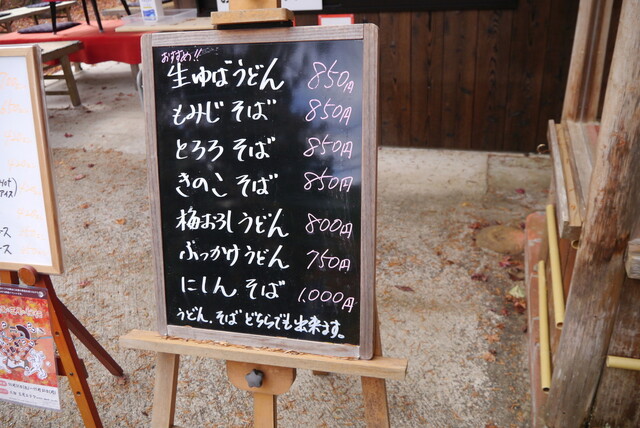 おすすめ!!
生ゆばうどん 850円
もみじそば 850円
とろろそば 850円
きのこそば 850円
梅おろしうどん 800円
ぶっかけうどん 750円
にしんそば 1,000円
うどん、そばどちらでも出来ます。